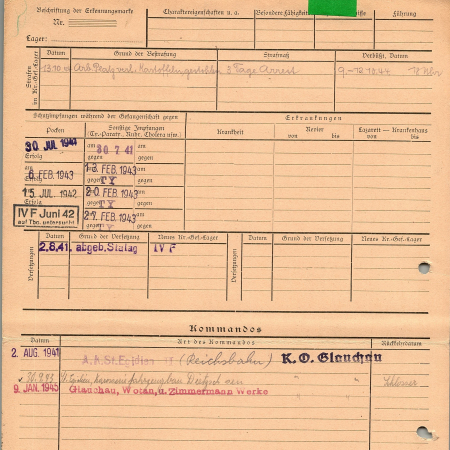 Beschriftung der Erkennungsmarke
Nr.
Charaktereigenschaften u. a.
Besondere Fähigkeiten
Führung
Lager:
Strafen im Kr.-Gef.-Lager
Datum
Grund der Bestrafung
Strafmaß
Verbüßt, Datum
13.10.44 Arb. Platz verl. Kartoffeln gestohlen 3 Tage Arrest 9.-12.10.44
Schutzimpfungen während der Gefangenschaft gegen
Erkrankungen
Pocken
Sonstige Impfungen
(Ty.-Paratr., Ruhr, Cholera usw.)
Krankheit
Revier
von bis
Lazarett — Krankenhaus
von bis
30. JUL 1941
am 30 7 41
am
Erfolg
gegen
gegen
6. FEB. 1943
13. FEB. 1943
am
Erfolg
gegen TY
gegen
15. JUL. 1942
20. FEB. 1943
am
Erfolg
gegen TY
gegen
IV F Juni 42
auf Tbc. untersucht
27. FEB. 1943
am
gegen TY
gegen
Versetzungen
Datum
Grund der Versetzung
Neues Kr.-Gef.-Lager
Datum
Grund der Versetzung
Neues Kr.-Gef.-Lager
2.8.41. abgeb. Stalag IV F
Kommandos
Datum
Art des Kommandos
Rückkehrdatum
2. AUG. 1941
A.A. St. Egidien II (Reichsbahn) K.O. Glauchau
St. Egidien,
" " Schlosser
9. JAN. 1945 Glauchau, Wotan, u. Zimmermann Werke " "